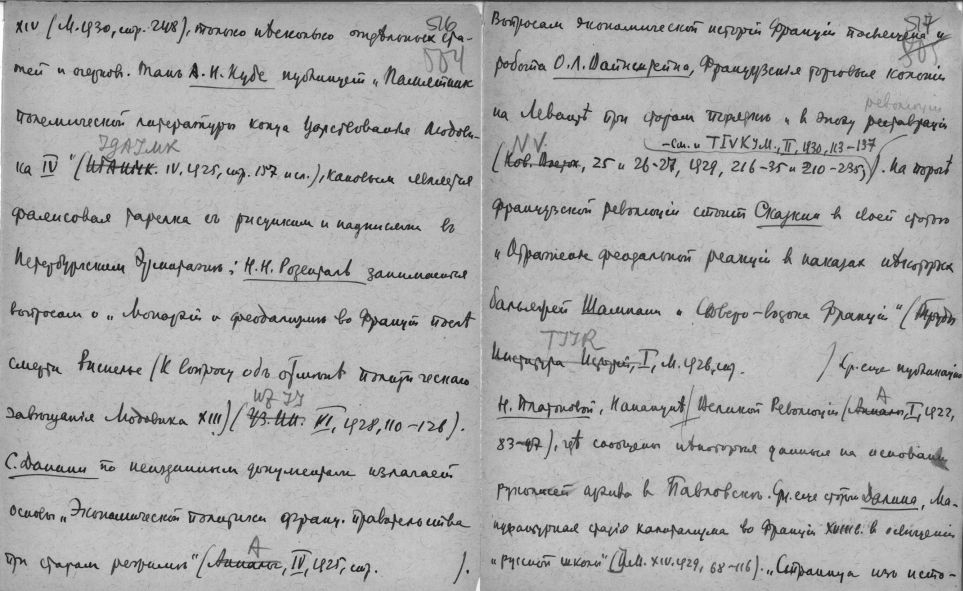 516
504
XIV (М. 1930, стр. 248), только нѣсколько отдѣльныхъ ста-
тей и очерков. Такъ А. Н. Кубе публикуетъ „Памятник
полемической литературы конца царствованія Людови-
IGAIMK
ка IV" (ИГАИМК. IV, 1925, стр. 157 и сл.), каковым является
фаянсовая тарелка съ рисунком и надписями въ
Петербургском Эрмитажѣ; Н. Н. Розенталь занимается
вопросом о „Монархіи и феодализмѣ во Франціи послѣ
смерти Ришелье (К вопросу объ отмѣнѣ политическаго
WZ II
завѣщанія Людовика XIII) (УЗ. ИИ. III, 1928, 110-126).
С. Данини по неизданным документам излагает
основы „Экономической политики франц. правительства
А
при старом режимѣ" (Анналы, IV, 1925, стр. ).
517
505
Вопросам экономической исторіи Франціи посвящена и
работа О. Л. Вайнштейна, Французскія торговыя колоніи
революціи
на Левантѣ при старом порядкѣ и в эпоху реставраціи
N V.
– см. и TIVKIM., II, 1930, 113-137
(Нов. Восток, 25 и 26-27, 1929, 216-35 и 210-235). На порогѣ
французской революціи стоит Сказкин в своей статьѣ
„Отраженіе феодальной реакціи в наказах нѣкоторых
бальяжей Шампани и Сѣверо-востока Франціи" (Труды
TIIR
Института Исторіи, I, М. 1926, стр. ) Ср. еще публикацію
А
Н. Платоновой, Наканунѣ Великой Революціи (Анналы, I, 1922,
83-97), гдѣ сообщены нѣкоторыя данныя на основаніи
рукописей архива в Павловскѣ. Ср. еще статьи Далина, Ма-
нуфактурная стадія капитализма во Франціи XVIII в. в освѣщеніи
„русской школы" (ИМ. XIV. 1929, 68-116). „Страница изъ исто-